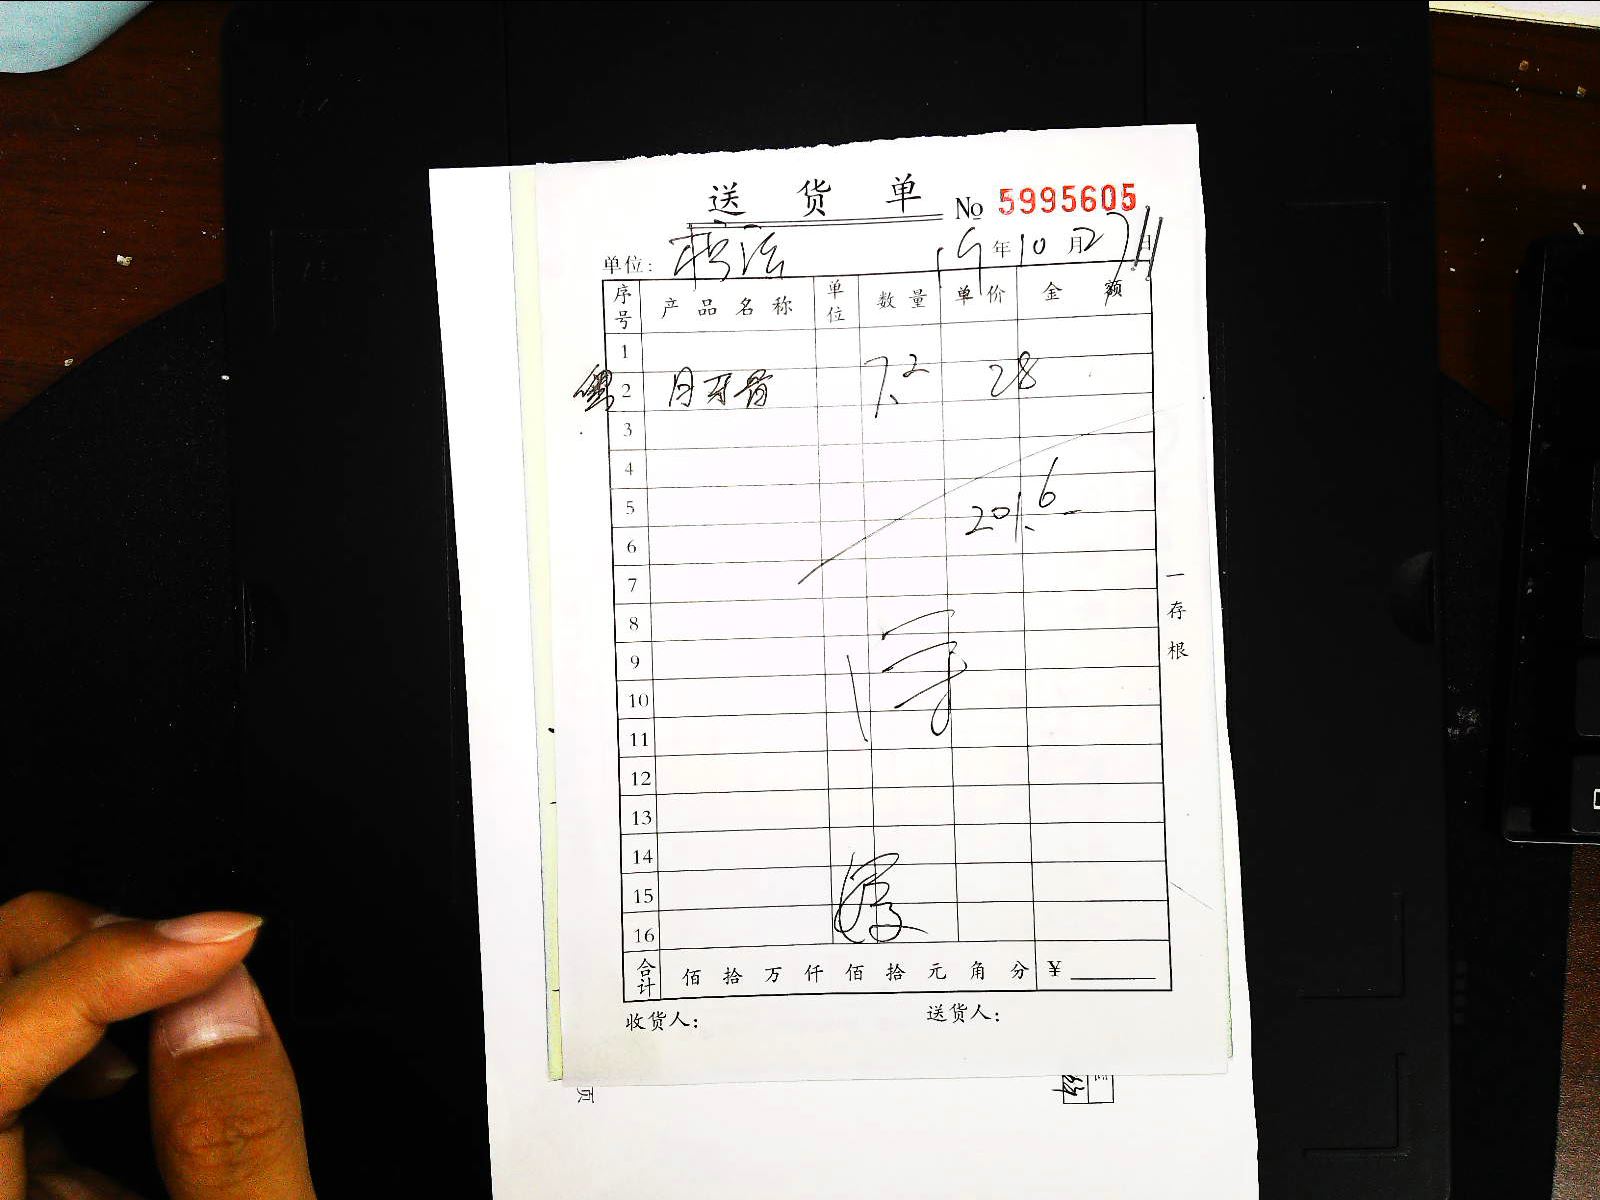 送货单 No 5995605
单位: 19年10月27日
序号 产品名称 单位 数量 单价 金额
1
2 月牙骨 7.2 28
3
4
5 201.6
6
7
8
9
10
11
12
13
14
15
16
合计 佰拾万仟佰拾元角分 ¥
收货人: 送货人:
一存根
页